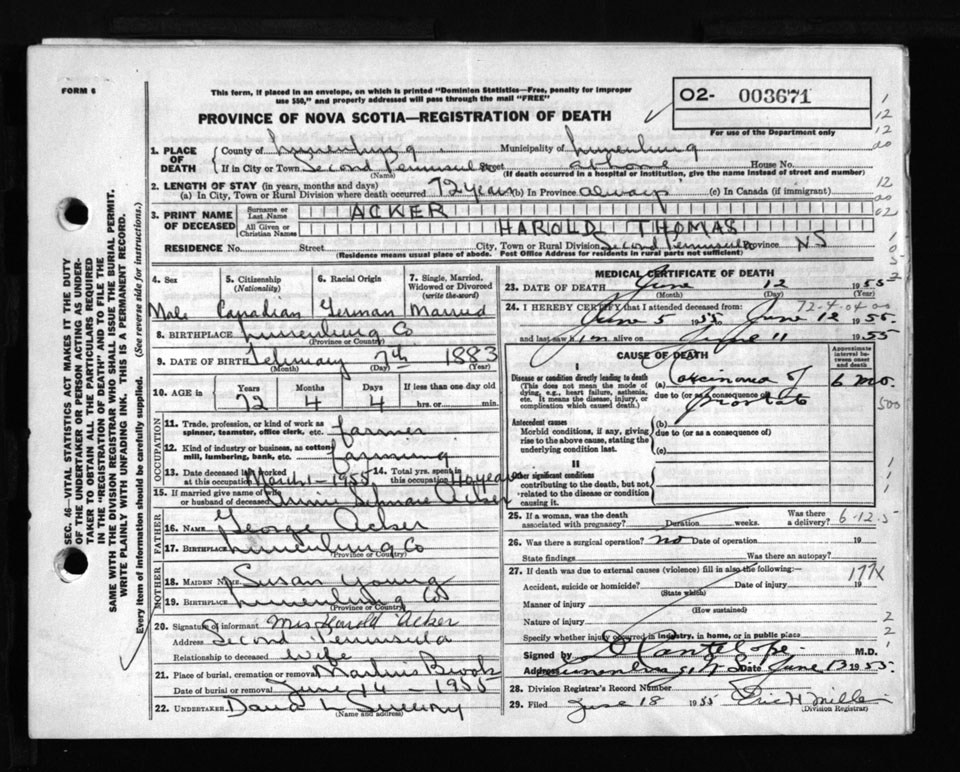 FORM 6
This form, if placed in an envelope, on which is printed "Dominion Statistics—Free, penalty for improper
use $50," and properly addressed will pass through the mail "FREE"
O2- 003671
PROVINCE OF NOVA SCOTIA—REGISTRATION OF DEATH
For use of the Department only
1. PLACE OF DEATH
County of Lunenburg Municipality of Lunenburg
If in City or Town Second Peninsula Street at home House No.
(Name) (If death occurred in a hospital or institution, give the name instead of street and number)
2. LENGTH OF STAY (in years, months and days)
(a) In City, Town or Rural Division where death occurred 72 years (b) In Province always (c) In Canada (if immigrant)
3. PRINT NAME OF DECEASED
Surname or Last Name ACKER
All Given or Christian Names HAROLD THOMAS
RESIDENCE No. Street City, Town or Rural Division Second Peninsula Province NS
(Residence means usual place of abode. Post Office Address for residents in rural parts not sufficient)
SEC. 46—VITAL STATISTICS ACT MAKES IT THE DUTY
OF THE UNDERTAKER OR PERSON ACTING AS UNDER-
TAKER TO OBTAIN ALL THE PARTICULARS REQUIRED
IN THE "REGISTRATION OF DEATH" AND TO FILE THE
SAME WITH THE DIVISION REGISTRAR WHO SHALL ISSUE THE BURIAL PERMIT.
WRITE PLAINLY WITH UNFADING INK. THIS IS A PERMANENT RECORD.
Every item of information should be carefully supplied. (See reverse side for instructions.)
4. Sex
5. Citizenship (Nationality)
6. Racial Origin
7. Single, Married, Widowed or Divorced (write the word)
Male Canadian German Married
8. BIRTHPLACE Lunenburg Co
(Province or Country)
9. DATE OF BIRTH February 7th 1883
(Month) (Day) (Year)
10. AGE in Years Months Days If less than one day old
72 4 4 hrs. or min.
OCCUPATION
11. Trade, profession, or kind of work as
spinner, teamster, office clerk, etc. farmer
12. Kind of industry or business, as cotton
mill, lumbering, bank, etc. farming
13. Date deceased last worked
at this occupation March 1-1955
14. Total yrs. spent in
this occupation 40 years
15. If married give name of wife
or husband of deceased Acker
FATHER
16. NAME George Acker
17. BIRTHPLACE Lunenburg Co
(Province or Country)
MOTHER
18. MAIDEN NAME Susan Young
19. BIRTHPLACE Lunenburg Co
(Province or Country)
20. Signature of informant Mrs Harold Acker
Address Second Peninsula
Relationship to deceased Wife
21. Place of burial, cremation or removal Brook
Date of burial or removal June 14 - 1955
22. UNDERTAKER
(Name and address)
MEDICAL CERTIFICATE OF DEATH
23. DATE OF DEATH June 12 1955
(Month) (Day) (Year)
24. I HEREBY CERTIFY that I attended deceased from: 72-4-04
June 5 1955 to June 12 1955
and last saw him alive on June 11 1955
CAUSE OF DEATH
Approximate interval between onset and death
I
Disease or condition directly leading to death
(This does not mean the mode of
dying, e.g., heart failure, asthenia,
etc. It means the disease, injury, or
complication which caused death.)
(a) Carcinoma of 6 mos.
due to (or as a consequence of) Prostate
Antecedent causes
Morbid conditions, if any, giving
rise to the above cause, stating the
underlying condition last.
(b)
due to (or as a consequence of)
(c)
II
Other significant conditions
contributing to the death, but not
related to the disease or condition
causing it.
25. If a woman, was the death
associated with pregnancy? Duration weeks. Was there a delivery? 6.12.5
26. Was there a surgical operation? no Date of operation 19
State findings Was there an autopsy?
27. If death was due to external causes (violence) fill in also the following:—
177X
Accident, suicide or homicide? Date of injury 19
(State which)
Manner of injury
(How sustained)
Nature of injury
Specify whether injury occurred in industry, in home, or in public place
Signed by M.D.
Address Lunenburg, N.S. Date June 13 1955
28. Division Registrar's Record Number
29. Filed June 18 1955
(Division Registrar)